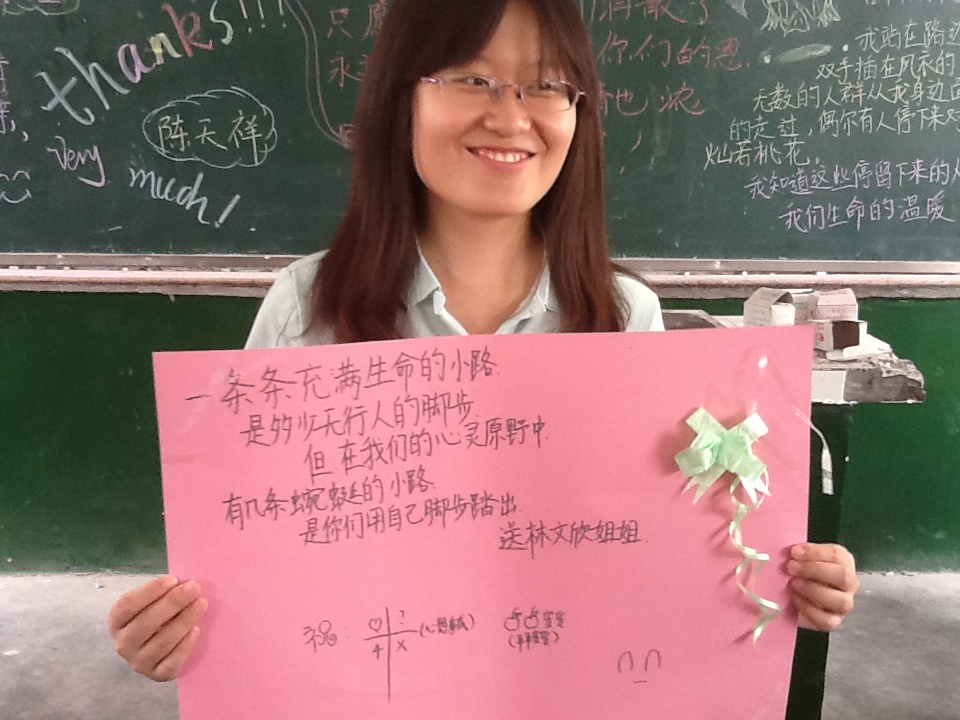 thanks!!!
Very
much!
陈天祥
只愿
消散了
你们的恩
永
他 浓
我站在路边
双手插在风衣的
无数的人群从我身边
的走过，偶尔有人停下来对
灿若桃花。
我知道这些停留下来的人
我们生命的温暖
一条条充满生命的小路
是多少天行人的脚步
但在我们的心灵原野中
有几条蜿蜒的小路
是你们用自己脚步踏出
送林文欣姐姐
祝:
♡ ?
4 x
(心想事成)
(平平安安)